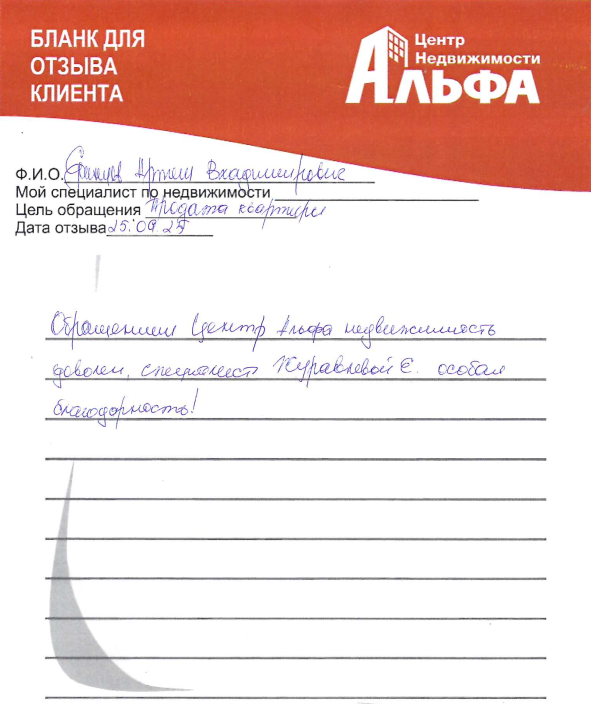 БЛАНК ДЛЯ
ОТЗЫВА
КЛИЕНТА
Центр
Недвижимости
АЛЬФА
Ф.И.О. Артем Владимирович
Мой специалист по недвижимости
Цель обращения Продажа квартиры
Дата отзыва 25.09.25
Обращением Центр Альфа недвижимость
доволен, специалист Журавлевой Е. особая
благодорность!